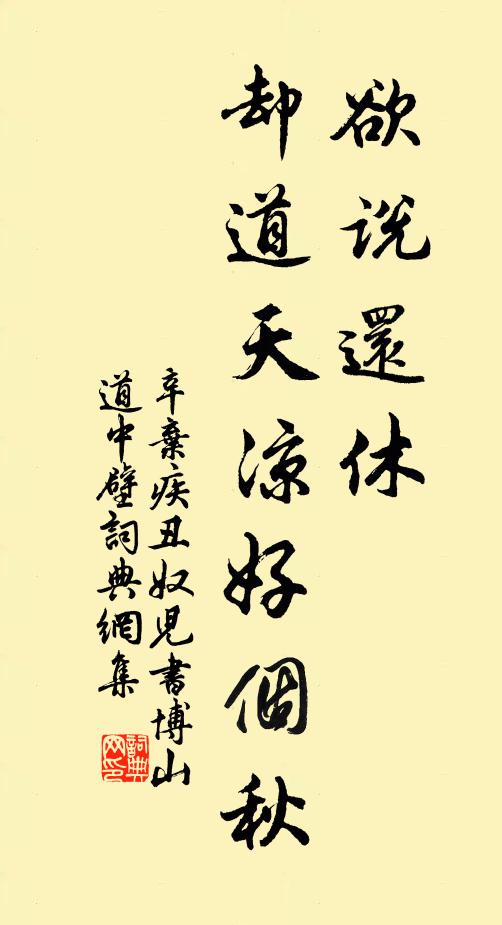 欲説還休
却道天涼好個秋
辛棄疾丑奴児書博山
道中壁詞典網集
詞典
网印